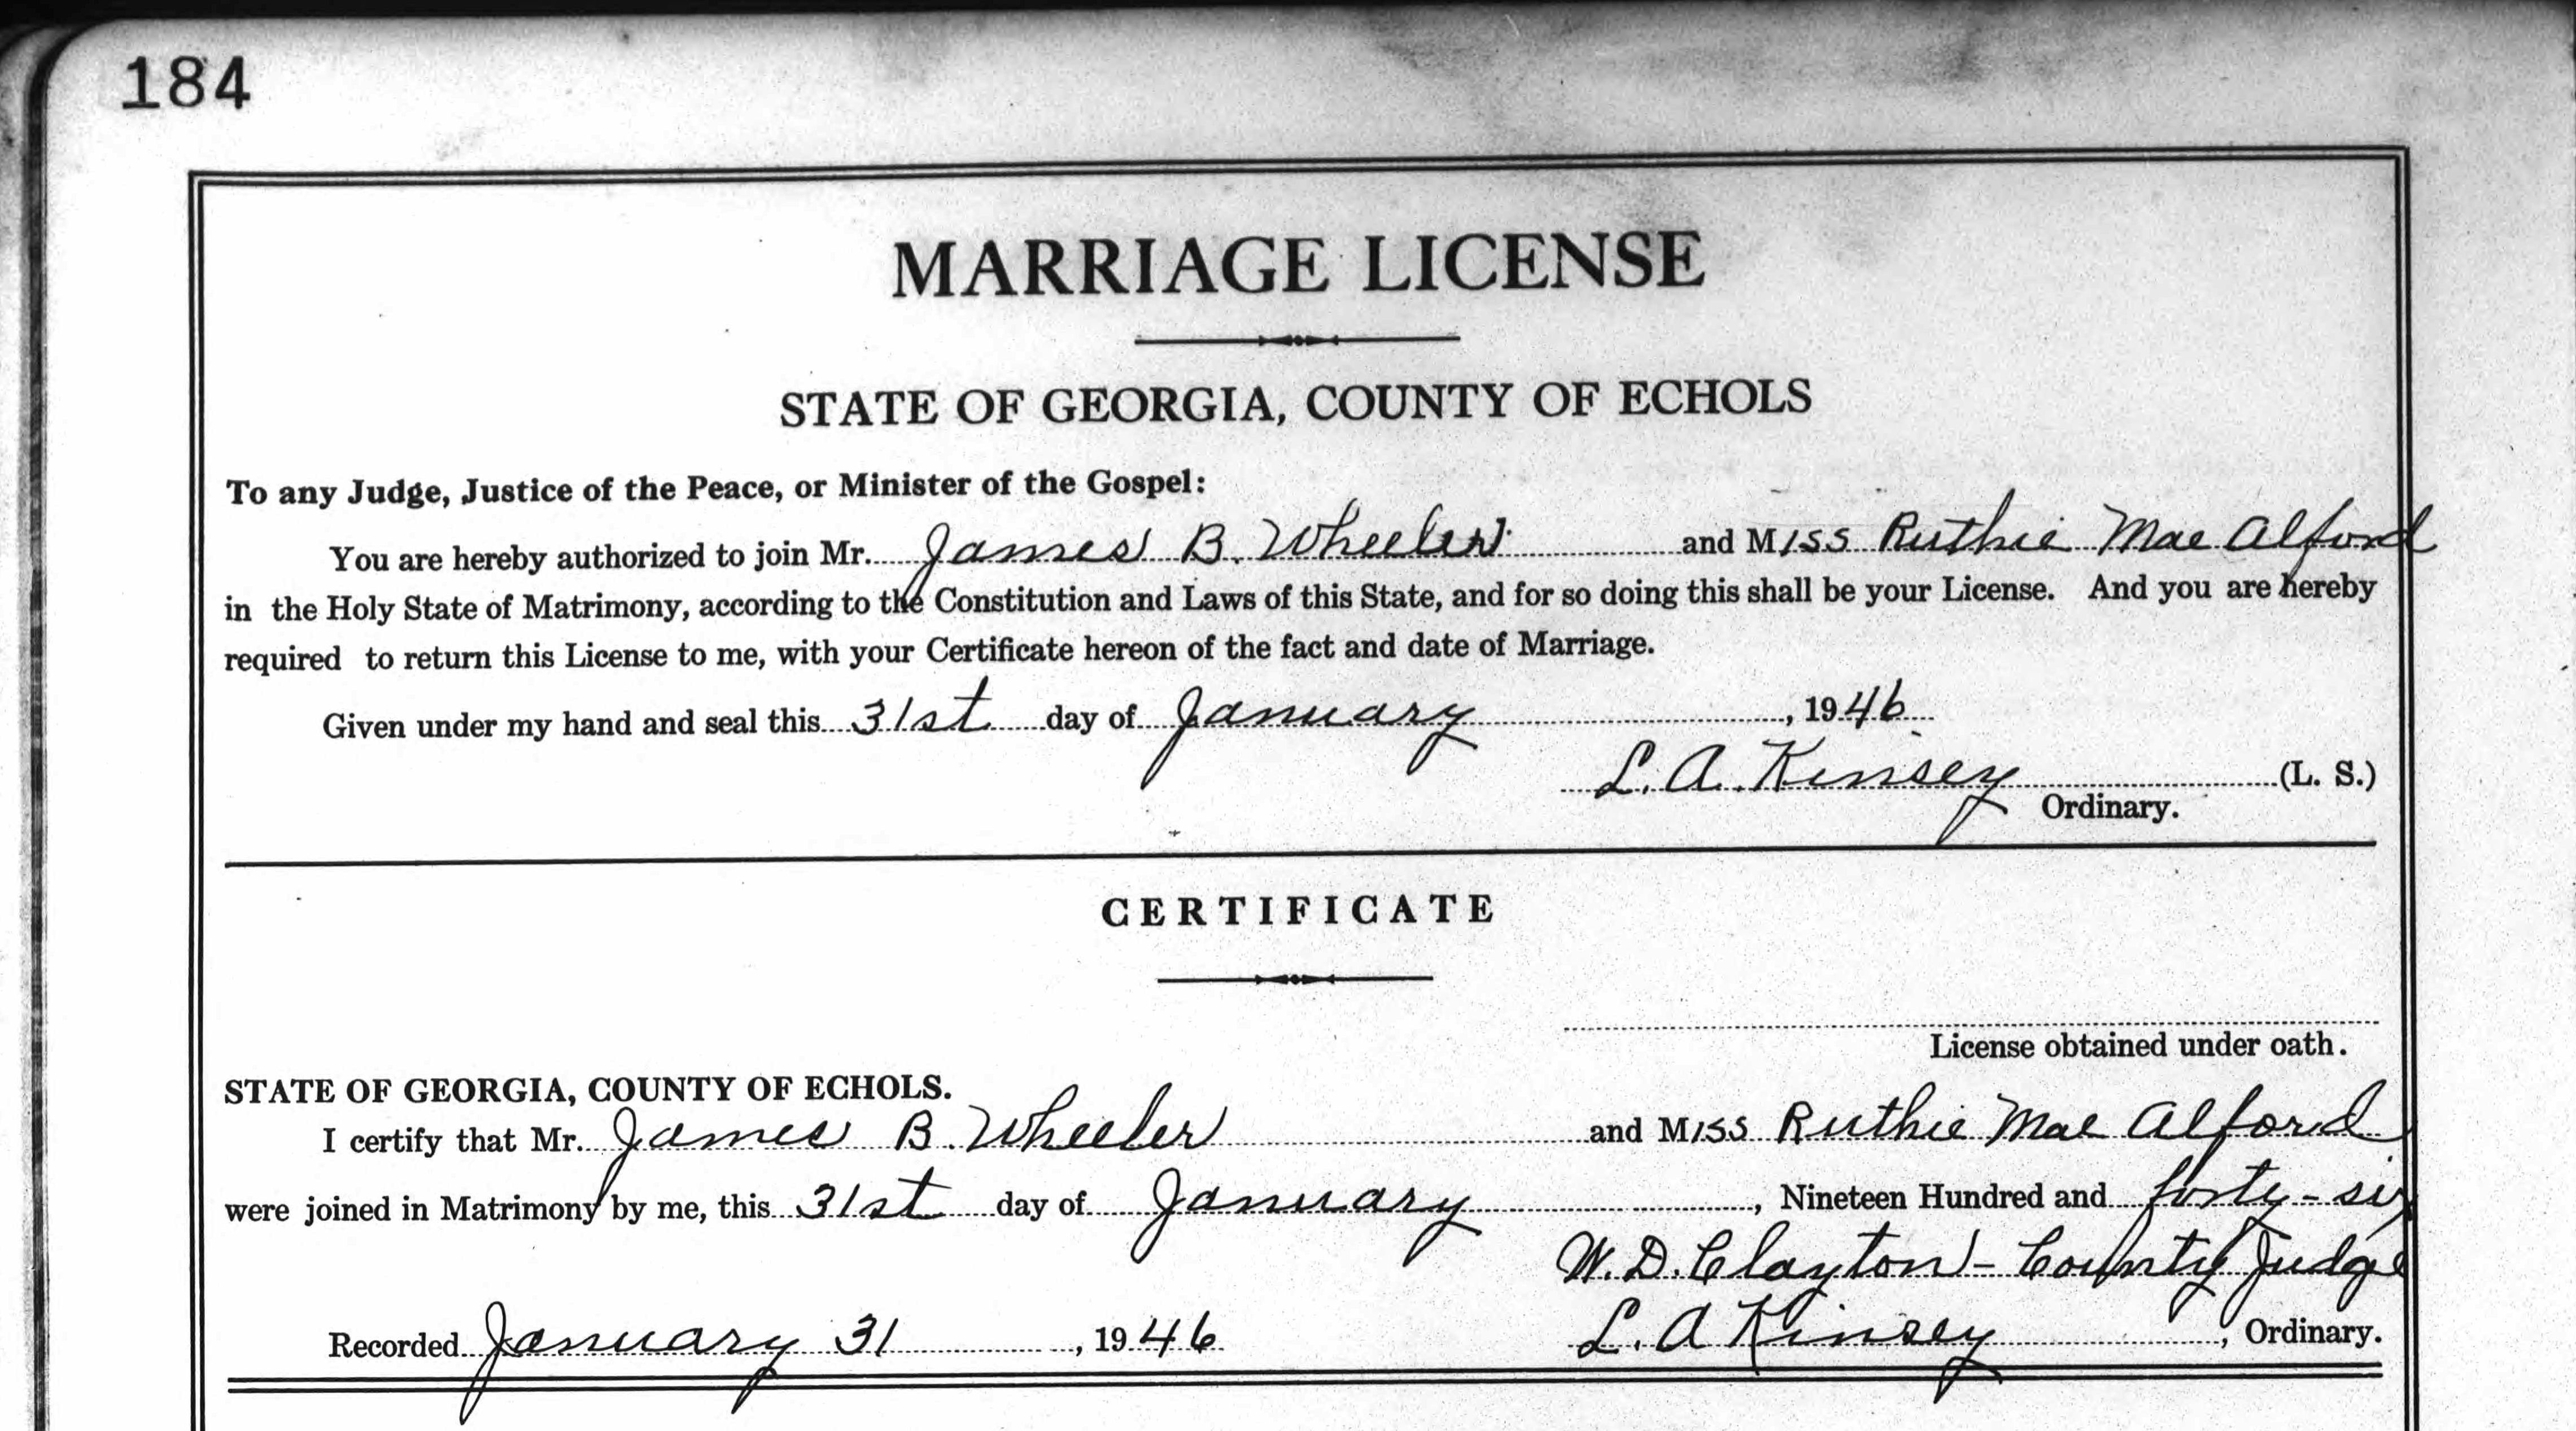 184
MARRIAGE LICENSE
STATE OF GEORGIA, COUNTY OF ECHOLS
To any Judge, Justice of the Peace, or Minister of the Gospel:
You are hereby authorized to join Mr. James B. Wheeler and Miss Ruthie Mae Alford
in the Holy State of Matrimony, according to the Constitution and Laws of this State, and for so doing this shall be your License. And you are hereby
required to return this License to me, with your Certificate hereon of the fact and date of Marriage.
Given under my hand and seal this 31st day of January, 1946
L. A. Kinsey (L. S.)
Ordinary.
CERTIFICATE
License obtained under oath.
STATE OF GEORGIA, COUNTY OF ECHOLS.
I certify that Mr. James B. Wheeler and Miss Ruthie Mae Alford
were joined in Matrimony by me, this 31st day of January, Nineteen Hundred and forty-six
W. D. Clayton - County Judge
Recorded January 31, 1946 L. A Kinsey, Ordinary.